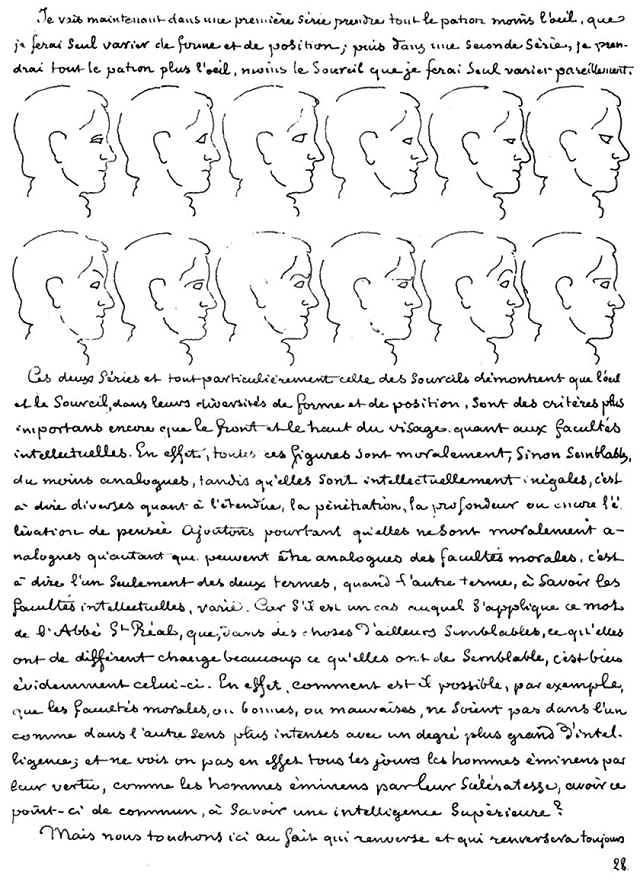 Je vais maintenant dans une première série prendre tout le patron moins l'œil, que
je ferai seul varier de forme et de position; puis dans une seconde série, je pren-
drai tout le patron plus l'œil, moins le sourcil que je ferai seul varier pareillement.
Ces deux séries et tout particulièrement celle des sourcils démontrent que l'œil
et le sourcil, dans leurs diversités de forme et de position, sont des critères plus
importans encore que le front et le haut du visage. quant aux facultés
intellectuelles. En effet, toutes ces figures sont moralement, sinon semblables,
du moins analogues, tandis qu'elles sont intellectuellement inégales, c'est
à dire diverses quant à l'étendue, la pénétration, la profondeur ou encore l'é-
lévation de pensée. Ajoutons pourtant qu'elles ne sont moralement a-
nalogues qu'autant que peuvent être analogues des facultés morales, c'est
à dire l'un seulement des deux termes, quand l'autre terme, à savoir les
facultés intellectuelles, varie. Car s'il est un cas auquel s'applique ce mot
de l'Abbé St Réals, que, dans des choses d'ailleurs semblables, ce qu'elles
ont de différent change beaucoup ce qu'elles ont de semblable, c'est bien
évidemment celui-ci. En effet, comment est il possible, par exemple,
que les facultés morales, ou bonnes, ou mauvaises, ne soient pas dans l'un
comme dans l'autre sens plus intenses avec un degré plus grand d'intel-
ligence; et ne voit on pas en effet tous les jours les hommes éminens par
leur vertu, comme les hommes éminens par leur scélératesse, avoir ce
point-ci de commun, à savoir une intelligence supérieure?
Mais nous touchons ici au fait qui renverse et qui renversera toujours
28.